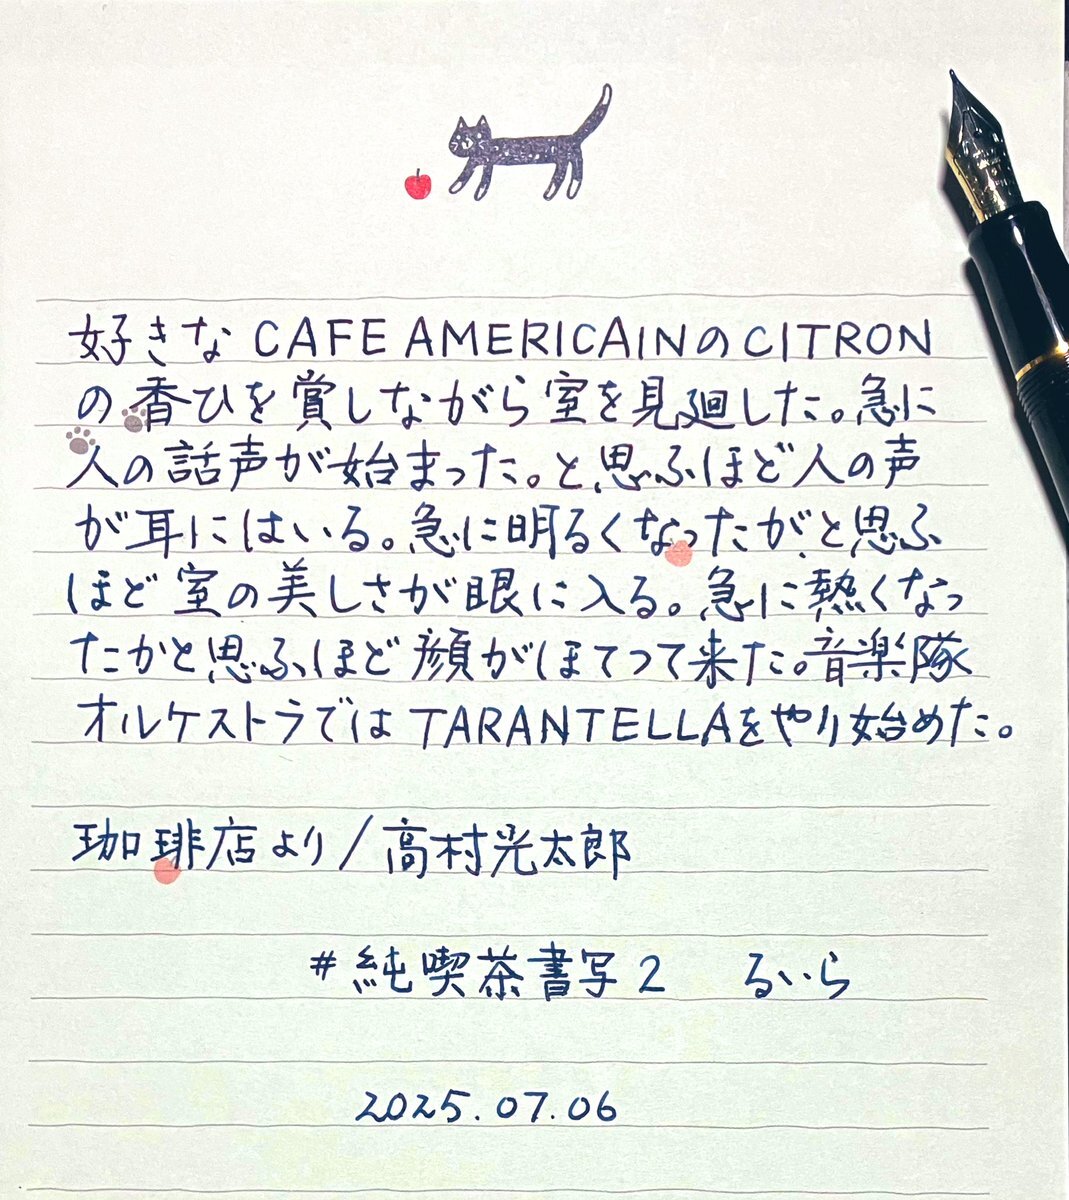 好きな CAFE AMERICAINのCITRON
の香ひを賞しながら室を見廻した。急に
人の話声が始まった。と思ふほど人の声
が耳にはいる。急に明るくなったがと思ふ
ほど室の美しさが眼に入る。急に熱くなっ
たかと思ふほど顔がほてつて来た。音楽隊
オルケストラではTARANTELLAをやり始めた。
珈琲店より/高村光太郎
#純喫茶書写2 るいら
2025.07.06